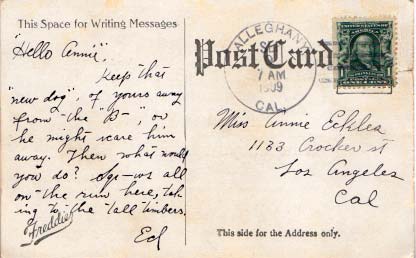 This Space for Writing Messages
"Hello Annie",
Keep that
"new dog", of yours away
from the "B-", or
he might scare him
away. Then what would
you do? We all
on the run here, tak-
ing to the tall timbers.
Ed
Freddie
Post Card
ALLEGHANY
7 AM
1909
CAL.
Miss Annie
1133 Crocker st
Los Angeles
Cal
This side for the Address only.